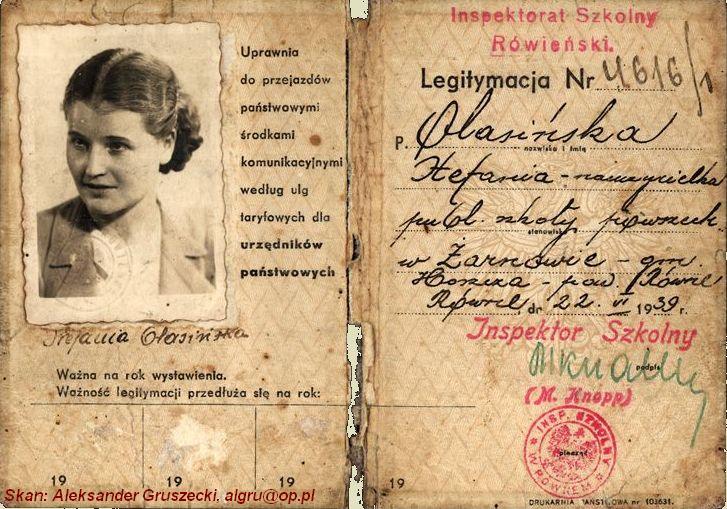 Uprawnia
do przejazdów
państwowymi
środkami
komunikacyjnymi
według ulg
taryfowych dla
urzędników
państwowych
Stefania Olasińska
Ważna na rok wystawienia.
Ważność legitymacji przedłuża się na rok:
19 19 19 19
Skan: Aleksander Gruszecki, algru@op.pl
Inspektorat Szkolny
Rówieński.
Legitymacja Nr 4616/1
P. Olasińska
nazwisko i imię
Stefania - nauczycielka
publ. szkoły powszech.
stanowisko
w Żarnowie - gm.
Hoszcza - pow. Równe
Równe, dn. 22. VI 1939 r.
Inspektor Szkolny
podpis
(M. Knopp)
INSP. SZKOLNY
W RÓWNEM
pieczęć
DRUKARNIA PAŃSTWOWA nr 103631.